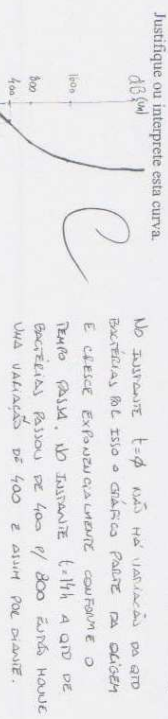 Justifique ou interprete esta curva.
dB (UN)
1600
800
400
NO INSTANTE t=φ NÃO HÁ VARIAÇÃO DA QTD
BACTÉRIAS POR ISSO O GRÁFICO PARTE DA ORIGEM
E CRESCE EXPONENCIALMENTE CONFORME O
TEMPO PASSA. NO INSTANTE t=14h A QTD DE
BACTÉRIAS PASSOU DE 400 P/ 800 ENTÃO HOUVE
UMA VARIAÇÃO DE 400 E ASSIM POR DIANTE.